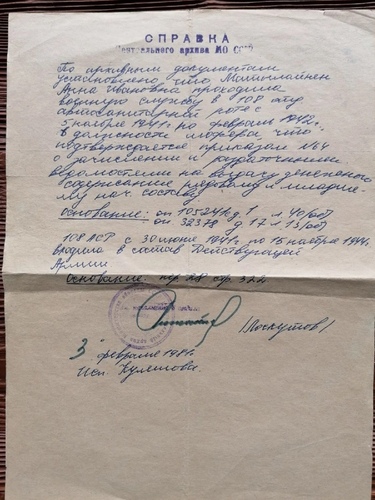 СПРАВКА
Центрального архива МО СССР
По архивным документам
установлено что
Анна Ивановна проходила
военную службу в 108 отд
автосанитарной роте с
5 ноября 1941г. по февраль 1942г.
в должности шофера, что
подтверждается приказом №4
о зачислении и раздаточными
ведомостями на выдачу денежного
содержания рядовому и младше-
му нач. составу
основание: оп 10524 к д. 1 л 40/об
оп. 32378 д 17 л. 13/об
108 АСР с 30 июня 1941г по 15 ноября 1944г.
входила в состав Действующей
Армии
основание: пер 28 стр. 322
/Москутов/
3 февраля 1981г.
Исп. Кулешова